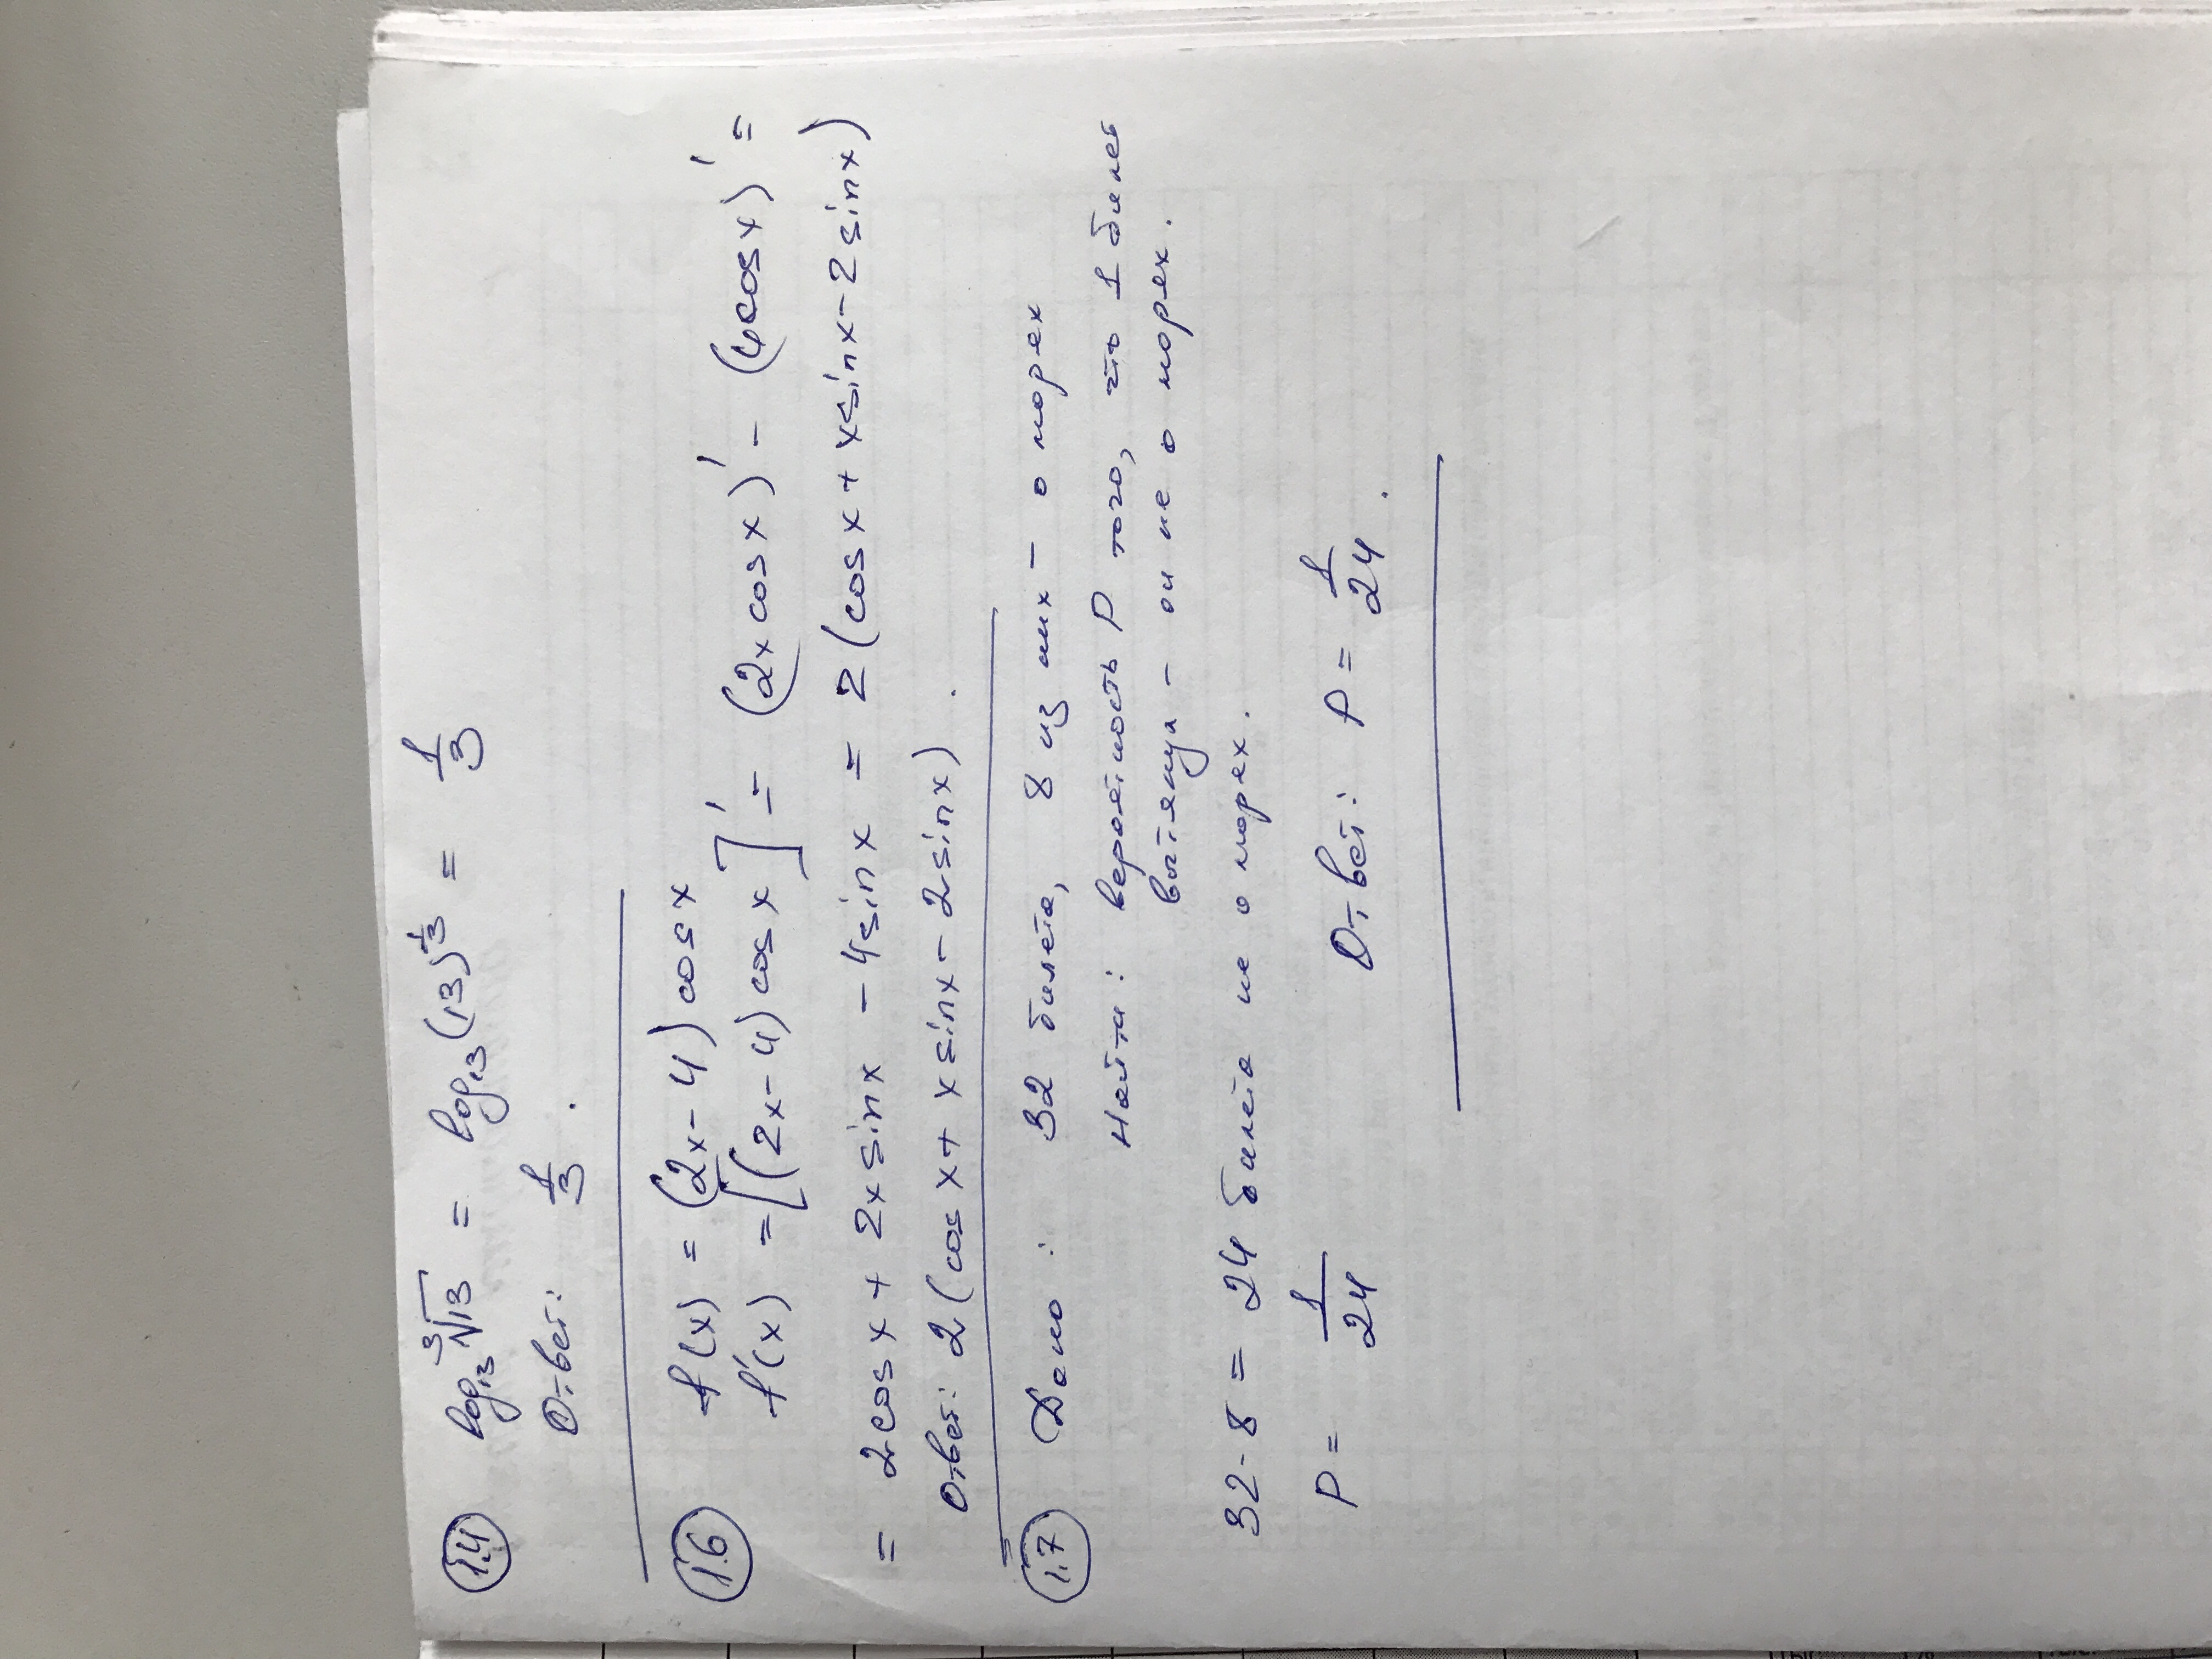 1.4 log₁₃ ³√13 = log₁₃(13)^⅓ = 1/3
О-вет: 1/3 .
1.6 f(x) = (2x-4)cosx
f'(x) = [(2x-4)cosx]' = (2xcosx)' - (4cosx)' =
= 2cosx + 2xsinx - 4sinx = 2(cosx + xsinx - 2sinx)
О-вет: 2(cosx + xsinx - 2sinx).
1.7 Дано: 32 билета, 8 из них - о морех
Найти: вероятность P того, что 1 билет
вытянул - он не о морех.
32-8 = 24 билета не о морех.
P = 1/24
О-вет: P = 1/24 .